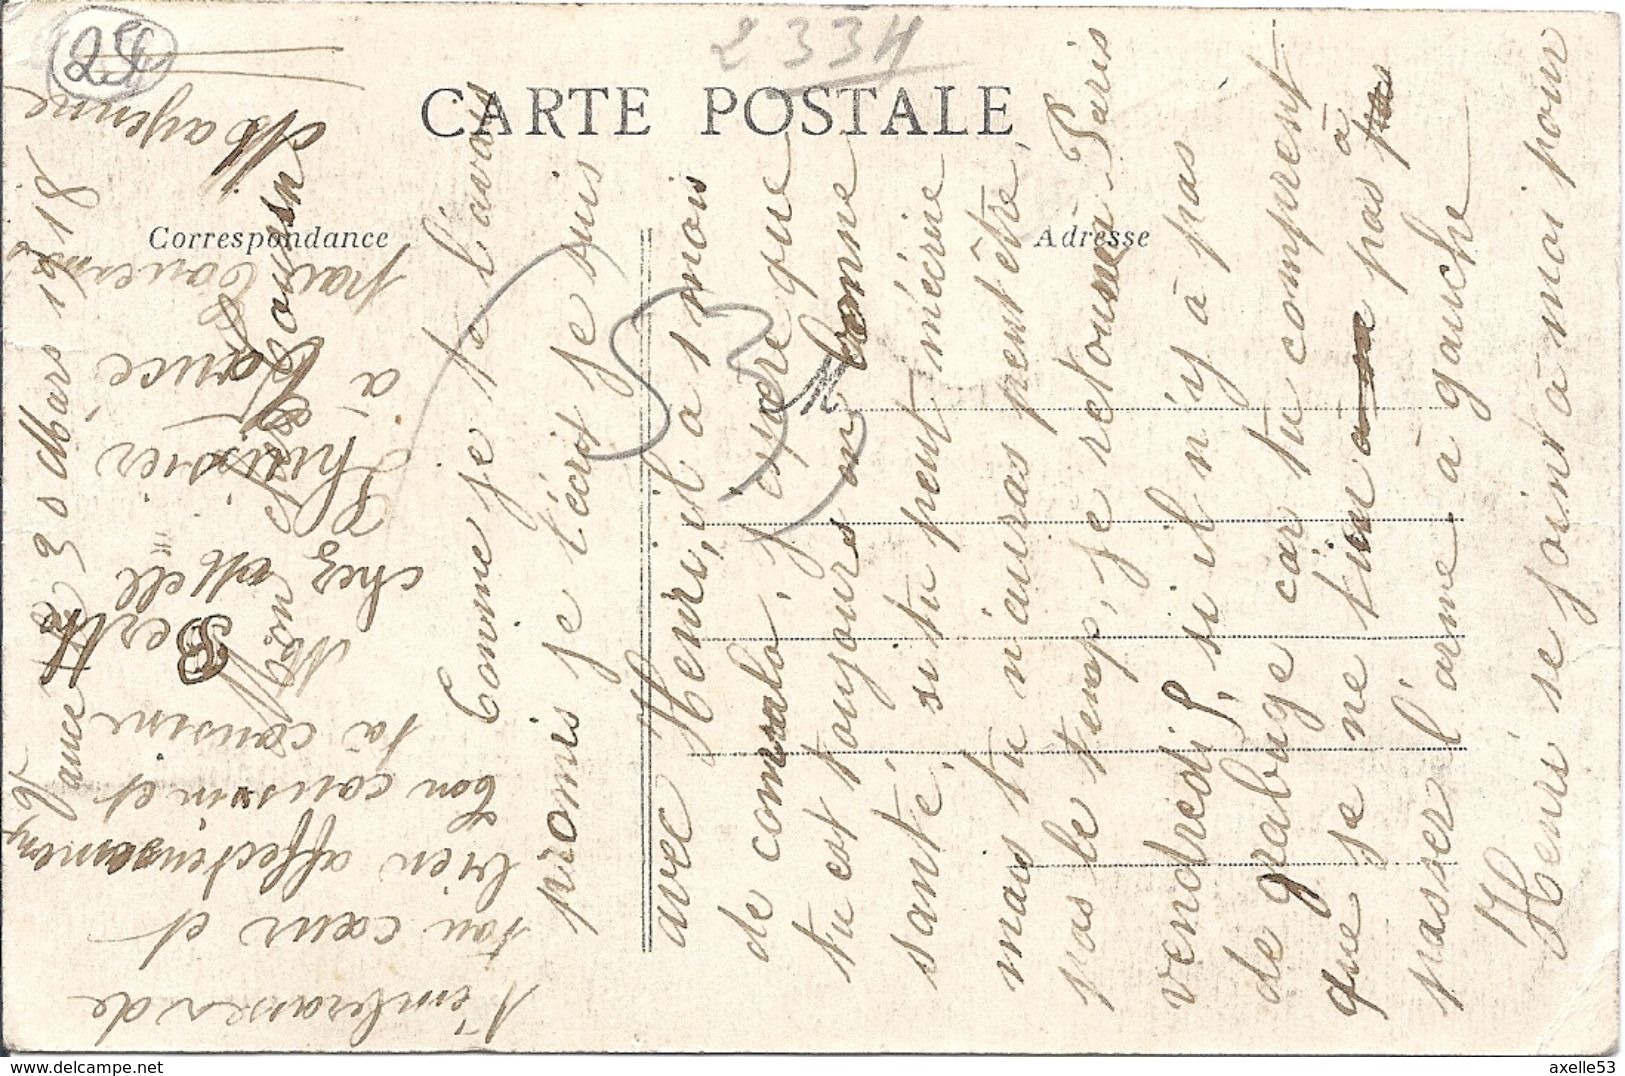 25
2334
CARTE POSTALE
Correspondance
Adresse
53
M
France 30 Mars 1918
Comme je te l'avais
promis je t'écrit je suis
avec Henri, il a 1 mois
de convalo, j'espère que
tu est toujours en bonne
santé, si tu peut m'écrire
mais tu n'auras peut être
pas le temp, je retourne à Paris
vendredi 5, si il n'y à pas
de grabuge car tu comprent
que je ne tien pas à
passer l'arme à gauche
Henri se joint à moi pour
t'embrasser de
tout cœur et
bien affectueusement
ton cousin et
ta cousine
Berthe
chez Mell
à Rance
par Couesmes
Mayenne
axelle53